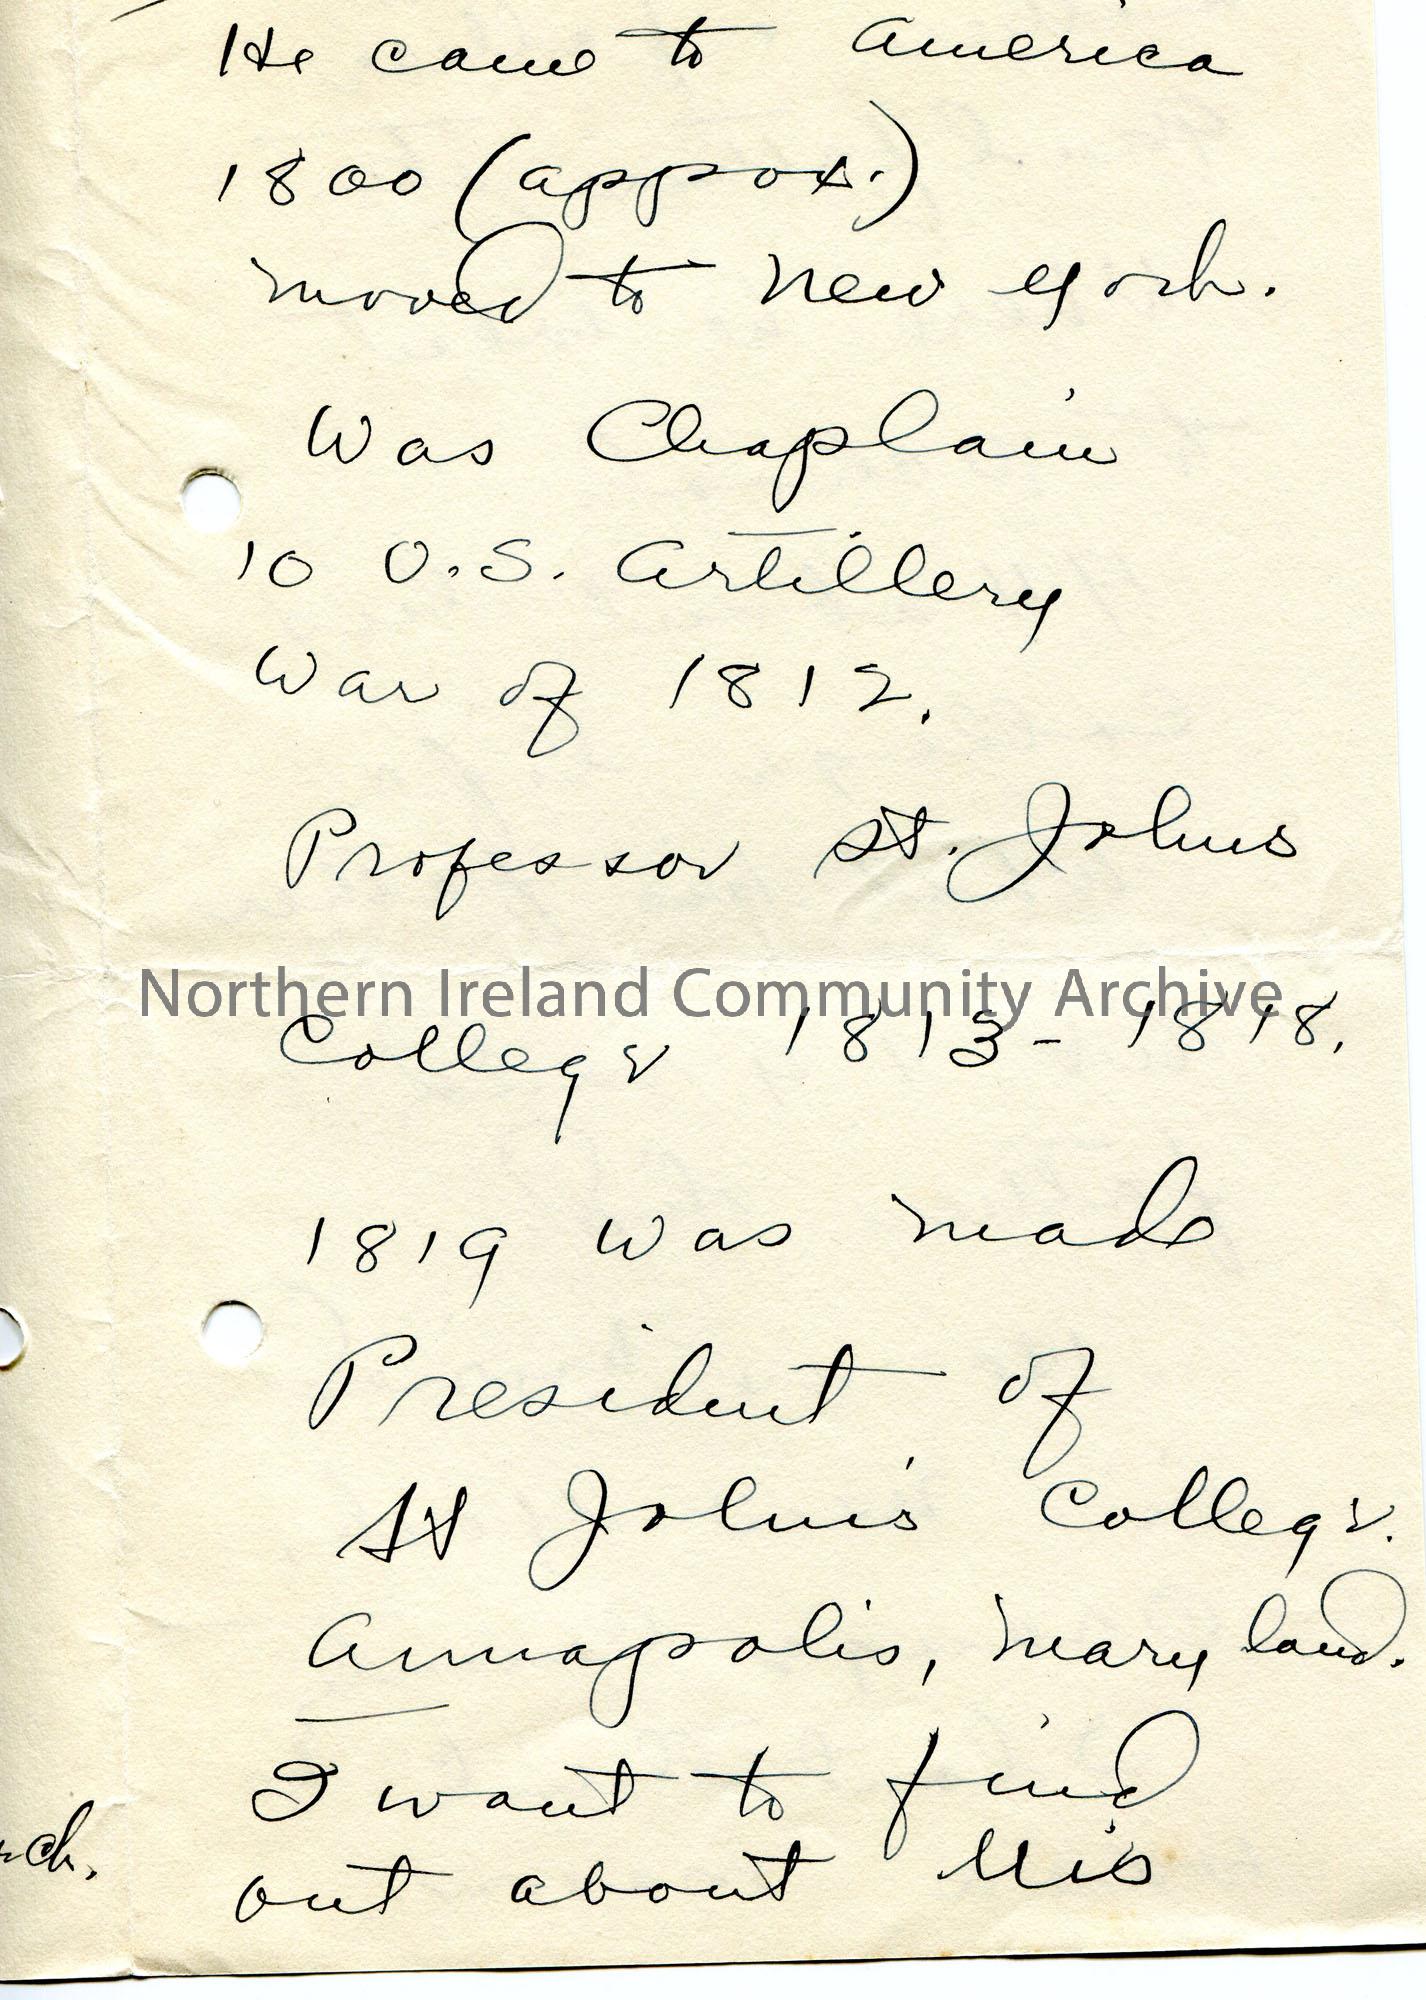 He came to America
1800 (approx.)
moved to New York.
Was Chaplain
10 U.S. Artillery
War of 1812.
Professor St. Johns
Northern Ireland Community Archive
College 1813 - 1818.
1819 was made
President of
St John's College.
Annapolis, Maryland.
I want to find
out about his
ch.